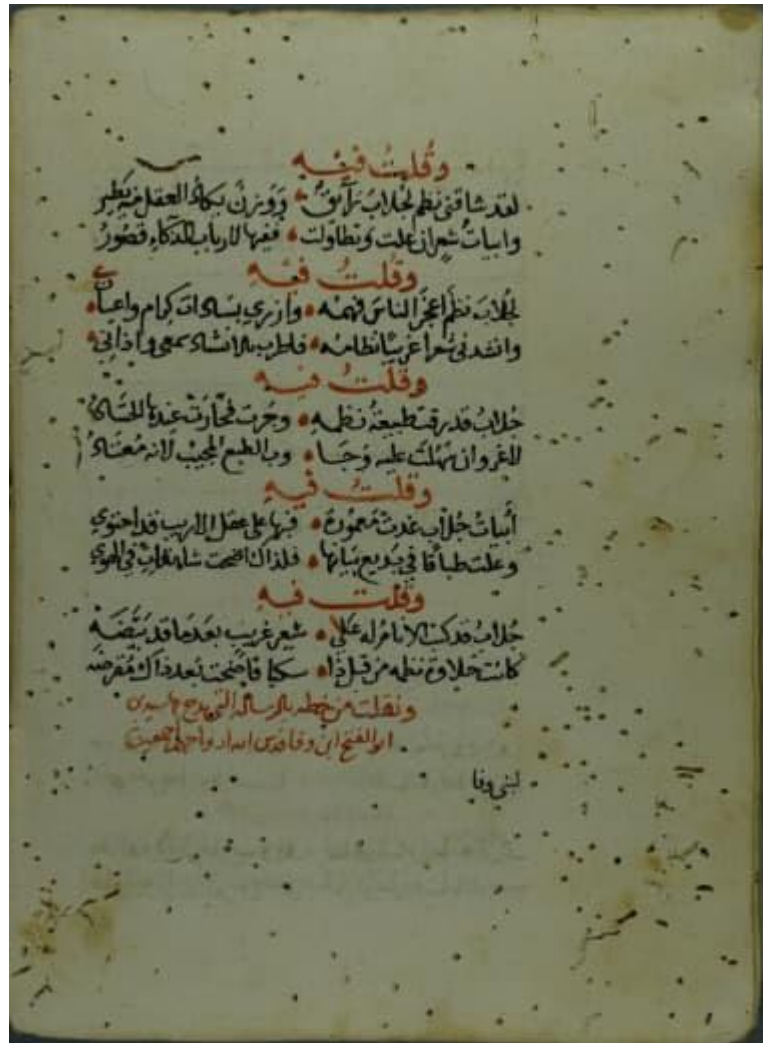 وقلت فيه
لقد شاقني نظم لجلاب رائق ووزن بكاد العقل منه يطير
وابيات شعر ان علت وتطاولت ففيها لارباب الذكاء قصور
وقلت فيه
لجلاب نظم اعجز الناس فهمه وازري بسادات كرام واعيان
وانشدني شعرا غريبا نظامه فاطرب بالانشاد سمعي واذاني
وقلت فيه
جلاب قد رقت طبيعة نظمه وجرت فحارت عندها
لاغرو ان عليه وبالطبع المجيب لانه
وقلت فيه
أبيات جلاب غدت معمورة فبها على عقل الاريب قد احتوي
وعلت طباقا في بديع بيانها فلذاك اضحت في الهوي
وقلت فيه
جلاب قد كت الانام له علي شعر غريب بعدما قد بيضه
كانت حلاوة نظمه من قبل ذا فاضحت بعد ذاك
ونقلت من خطه بالرسالة التي مدح بها سيدي
ابو الفتح ابن وفا قدس الله ارواحهم اجمعين
لبني وفا